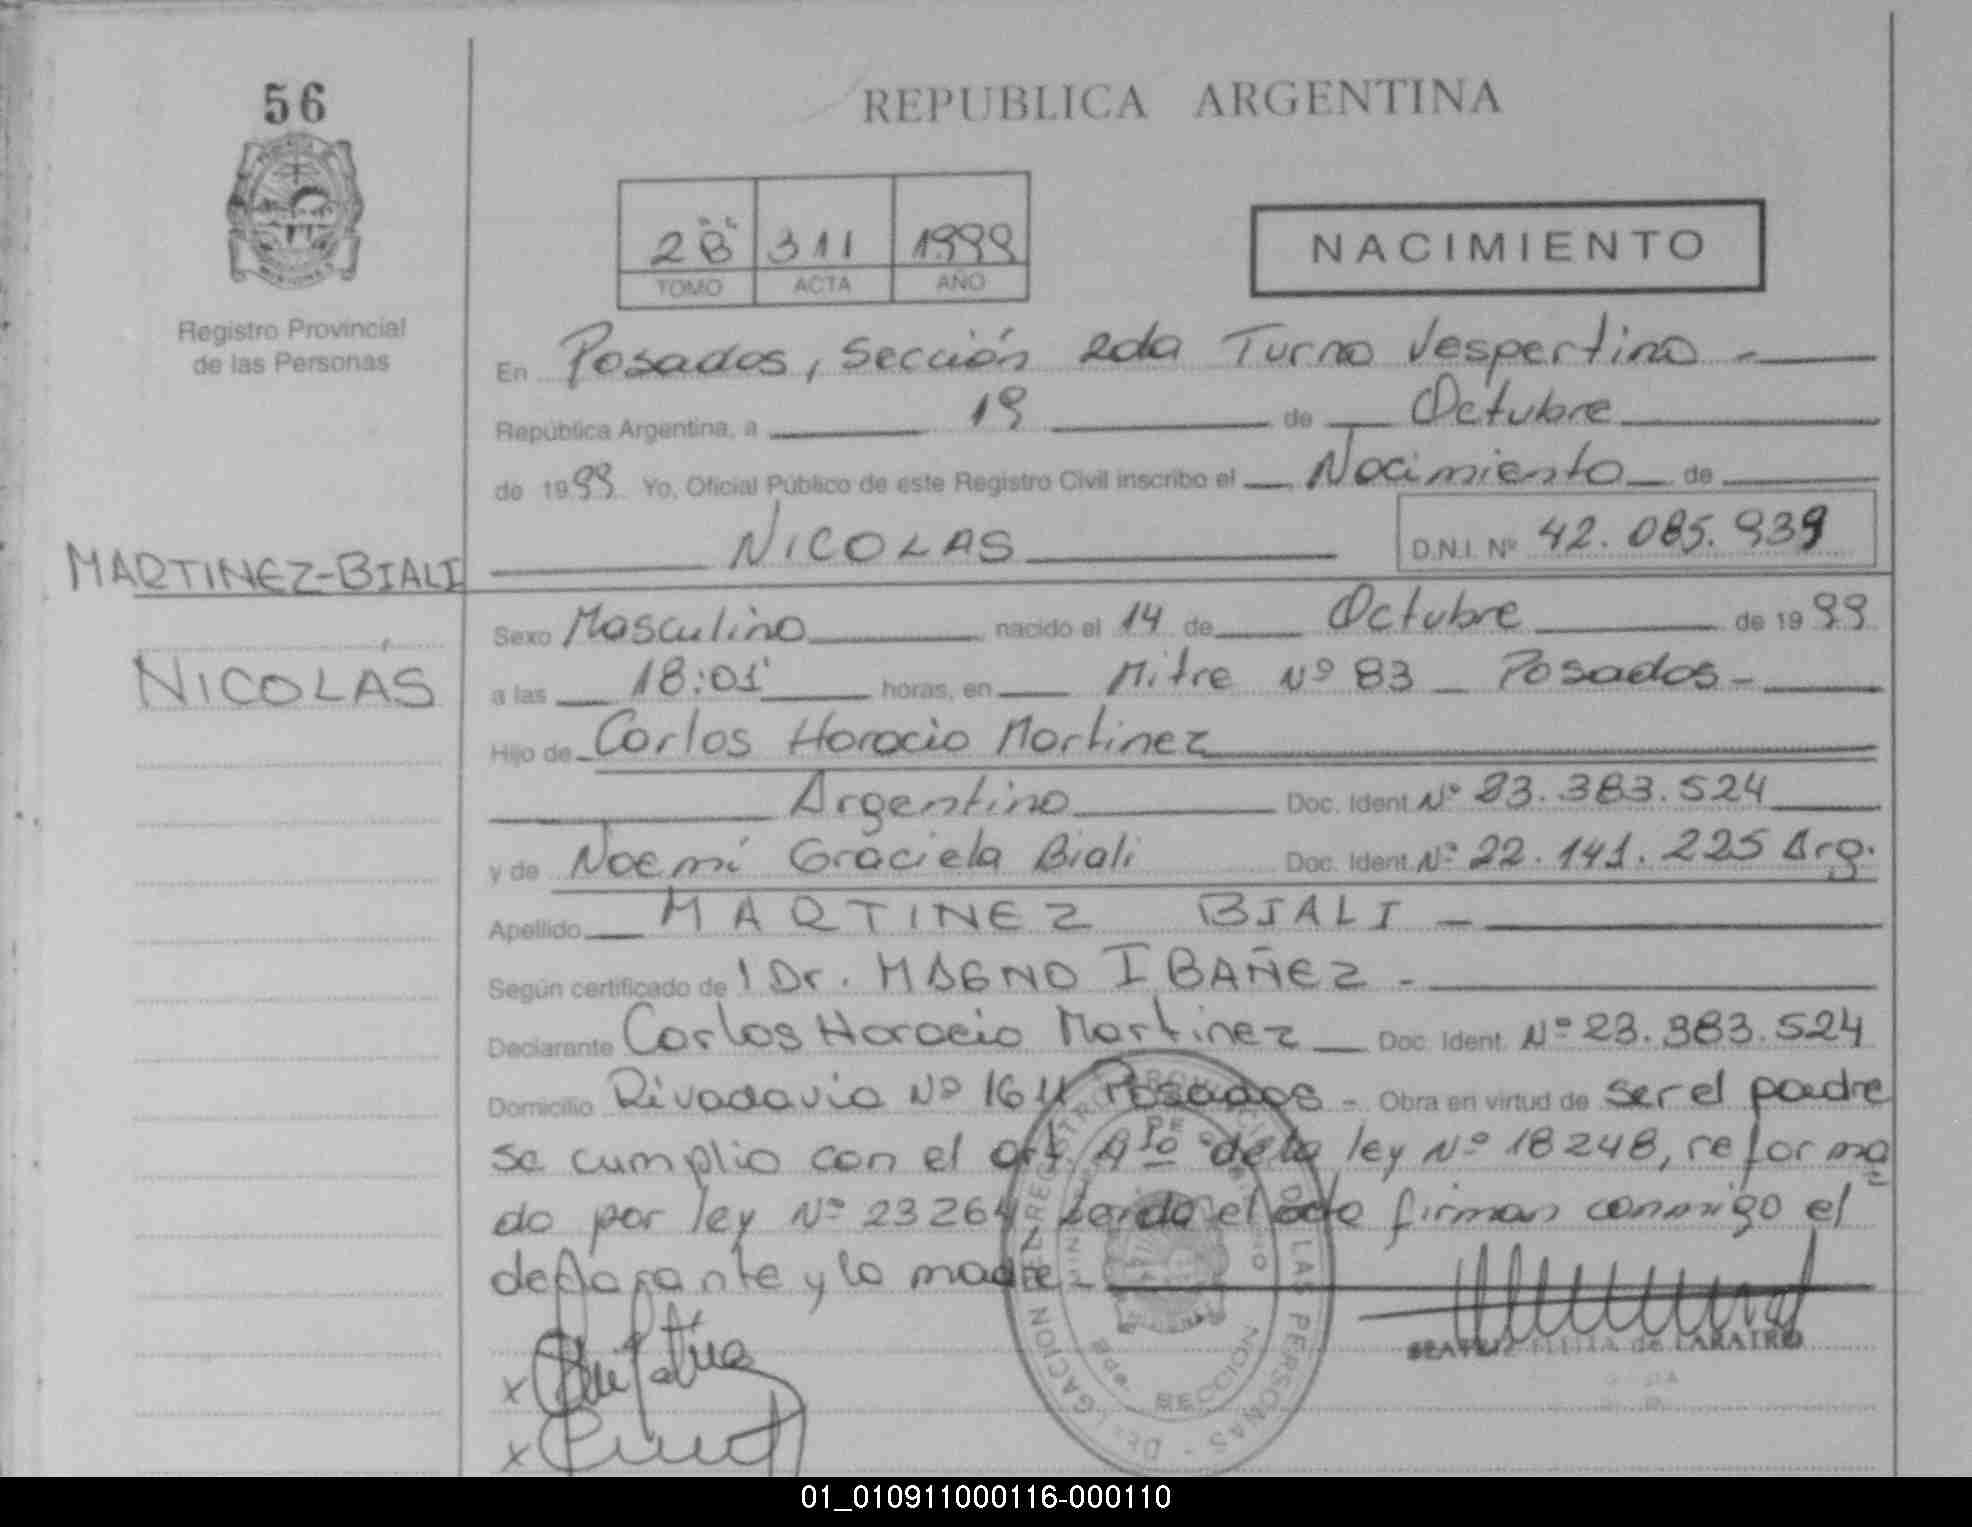 56
REPUBLICA ARGENTINA
2B "C" 311 1999
TOMO ACTA AÑO
NACIMIENTO
Registro Provincial
de las Personas
En Posadas, Sección 2da Turno Vespertino -
República Argentina, a 19 de Octubre
de 1999 Yo, Oficial Público de este Registro Civil inscribo el Nacimiento de
NICOLAS D.N.I. Nº 42.085.939
MARTINEZ-BIALI
NICOLÁS
Sexo Masculino nacido el 14 de Octubre de 1999
a las 18:01' horas, en Mitre Nº 83 - Posadas -
Hijo de Carlos Horacio Martinez
Argentino Doc. Ident. Nº 23.383.524
y de Noemí Graciela Biali Doc. Ident. Nº 22.141.225 Arg.
Apellido MARTINEZ BIALI -
Según certificado de l Dr. MAGNO IBAÑEZ -
Declarante Carlos Horacio Martinez Doc. Ident. Nº 23.383.524
Domicilio Rivadavia Nº 1611 Posadas - Obra en virtud de ser el padre
se cumplio con el art. de la ley Nº 18248, reforma=
do por ley Nº 23264 el acta firman conmigo el
declarante y la madre -
DELEGACION DEL REGISTRO PROVINCIAL DE LAS PERSONAS
SECCION
BEATRIZ de
01_010911000116-000110